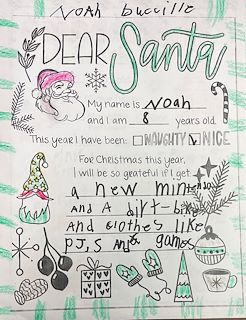 NoAh buccille
DEAR Santa
My name is Noah
and I am 8 years old.
This year I have been: NAUGHTY NICE
For Christmas this year,
I will be so grateful if I get
a new
And A dirt-bike
And clothes like
PJ,s and games